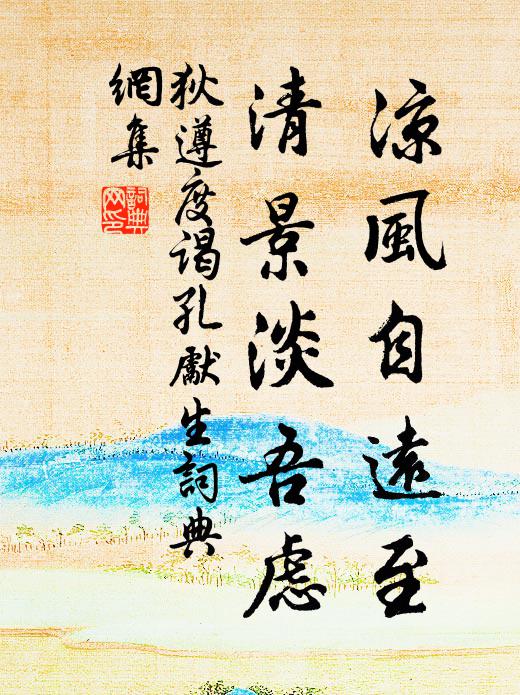 涼風自遠至
清景淡吾慮
狄遵度謁孔獻生詞典
網集
詞典網印